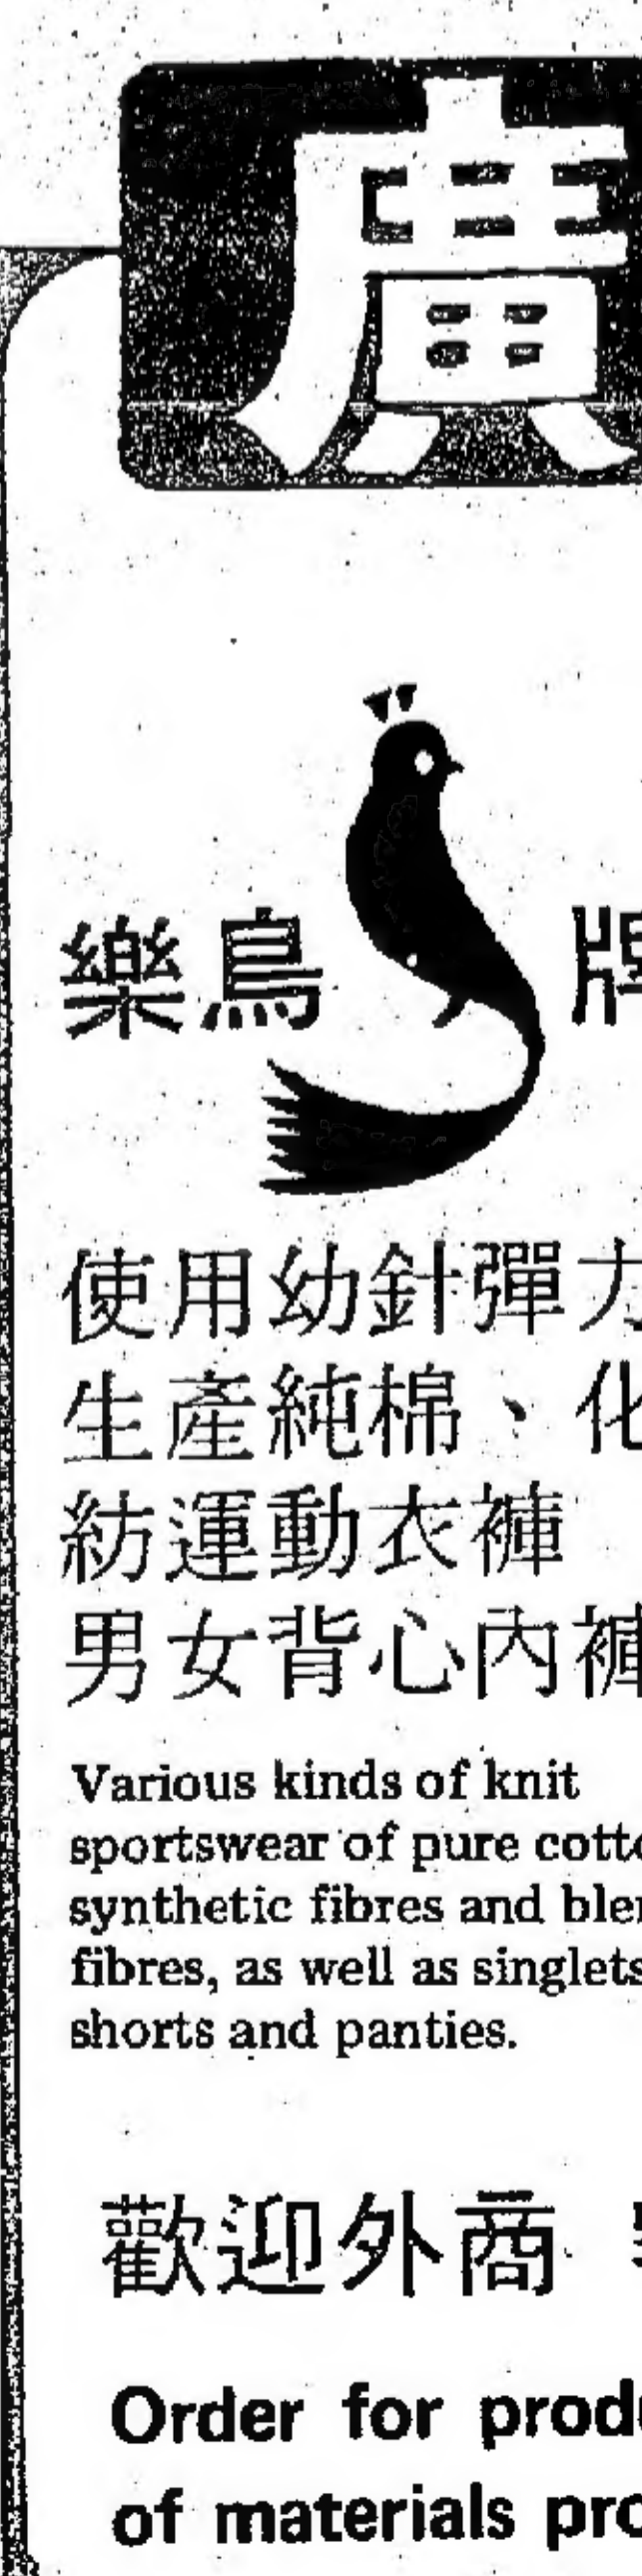 廣
樂鳥 牌
使用幼針彈力
生產純棉、化
紡運動衣褲
男女背心內褲
Various kinds of knit
sportswear of pure cotto
synthetic fibres and blen
fibres, as well as singlets
shorts and panties.
歡迎外商
Order for produ
of materials pro